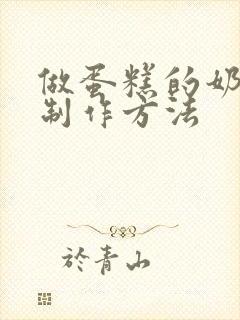 做蛋糕的奶
制作方法
於青山